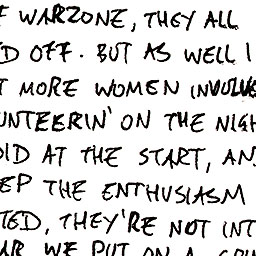 F WARZONE, THEY ALL
D OFF. BUT AS WELL I
T MORE WOMEN INVOLVE
UNTEERIN' ON THE NIGH
DID AT THE START, AN
EP THE ENTHUSIASM
TED, THEY'RE NOT INT
WE PUT ON A